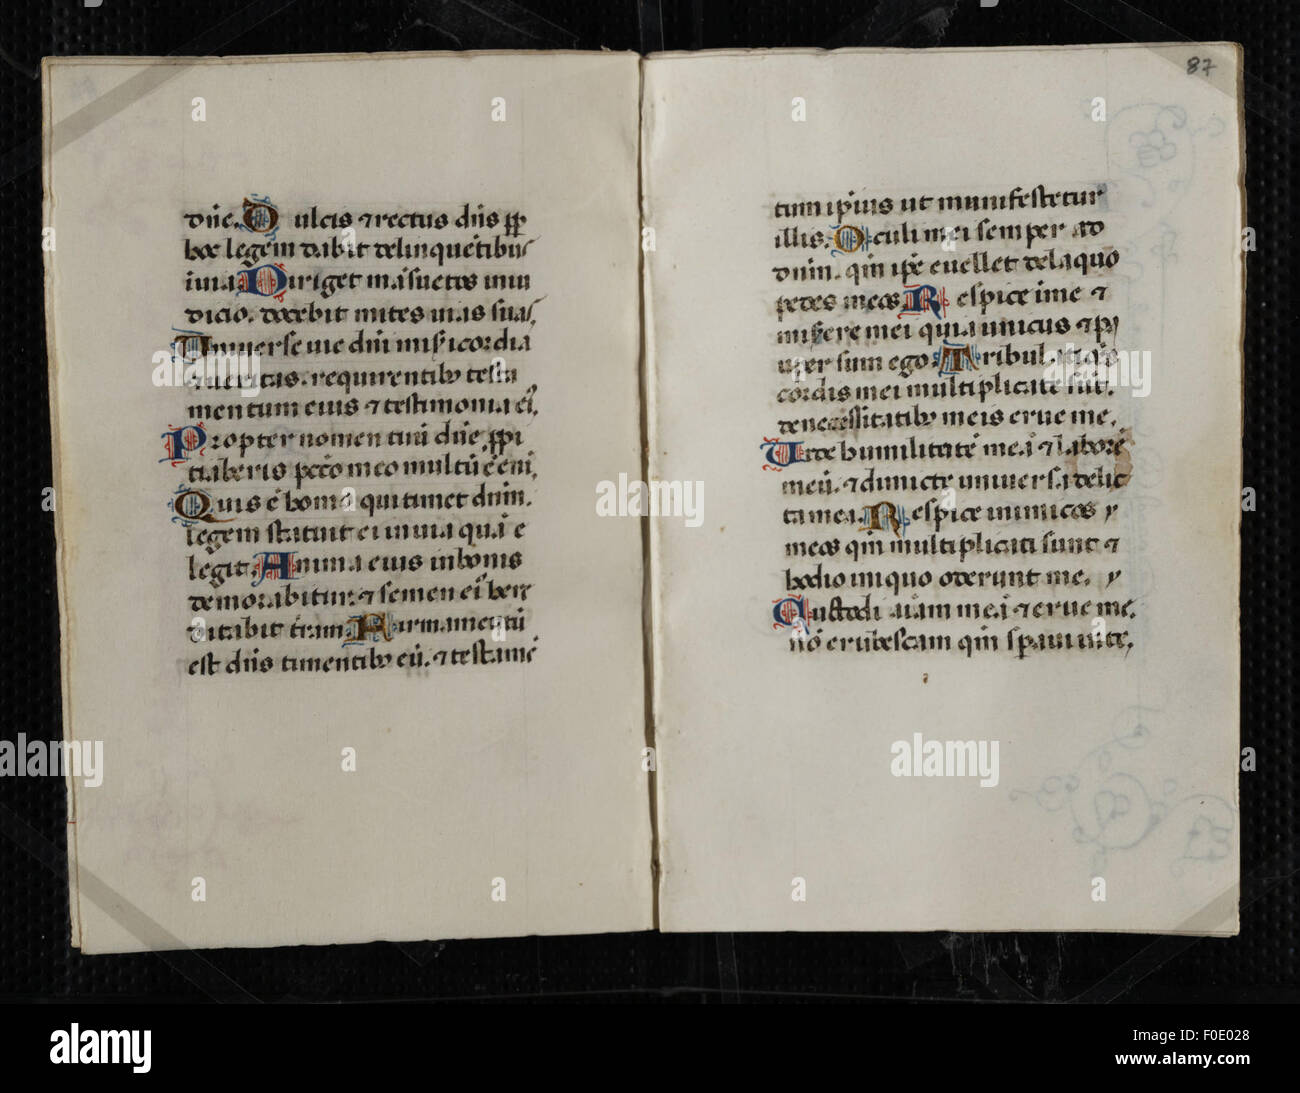 dñe. Dulcis ⁊ rectus dñs pp
hoc legem dabit delinquētibus
in uia. Diriget māsuetos in iu
dicio. docebit mites uias suas.
Uniuerse uie dñi misicordia
⁊ ueritas. requirentibꝰ testa
mentum eius ⁊ testimonia ei.
Propter nomen tuū dñe ppi
tiaberis pctō meo multū ē eni.
Quis ē homo qui timet dñm.
legem statuit ei in uia quā e
legit. Anima eius in bonis
demorabitur. ⁊ semen ei here
ditabit trām. Firmamentū
est dñs timentibꝰ eū. ⁊ testamē
87
tum ipsius ut manifestetur
illis. Oculi mei semper ad
dñm. qm ipe euellet de laqueo
pedes meos. Respice ime ⁊
miserere mei quia unicus ⁊ p
uper sum ego. Tribulatiões
cordis mei multiplicate sūt.
de necessitatibꝰ meis erue me.
Uide humilitatē meā ⁊ laborē
meū. ⁊ dimicte uniuersa delic
ta mea. Respice inimicos
meos qm multiplicati sunt ⁊
hodio iniquo oderunt me.
Custodi aīam meā ⁊ erue me.
nō erubescam qm speraui inte.
alamy
Image ID: F0E028
www.alamy.com